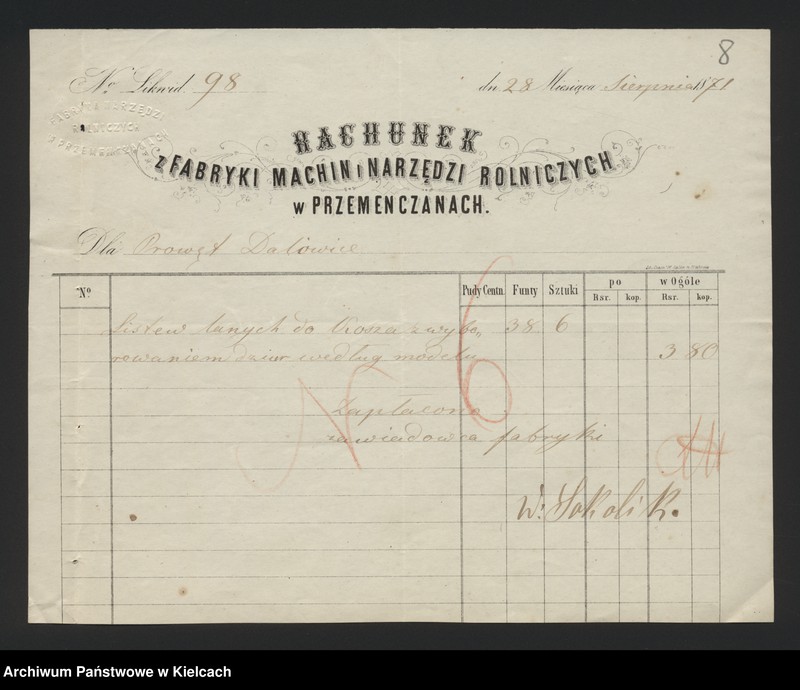 8
No Likwid. 98
dn. 28 Miesiąca Sierpnia 1871
FABRYKA NARZĘDZI
ROLNICZYCH
RACHUNEK
z FABRYKI MACHIN i NARZĘDZI ROLNICZYCH
w PRZEMENCZANACH.
Dla Prowęt Dalowice
No Pudy Centn. Funty Sztuki po w Ogóle
Rsr. kop. Rsr. kop.
Listew lanych do Kosza z wybo„ 38 6
rowaniem dziur według modelu 3 80
Zapłacono
zawiadowca fabryki
W: Sokolik.
N 6
Archiwum Państwowe w Kielcach